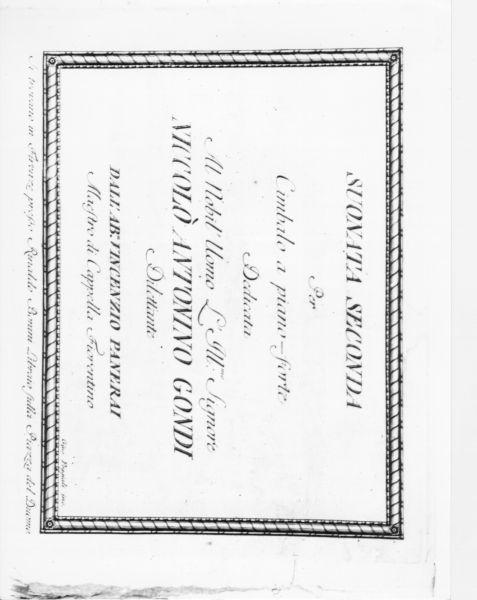 SUONATA SECONDA
Per
Cimbalo a piano-forte
Dedicata
Al Nobil Uomo L'Ill.mo Signore
NICCOLÒ ANTONINO GONDI
Dilettante
DALL'AB. VINCENZIO PANERAI
Maestro di Cappella Fiorentino
Si trovano in Firenze presso Rinaldo Bonini Libraio sulla Piazza del Duomo